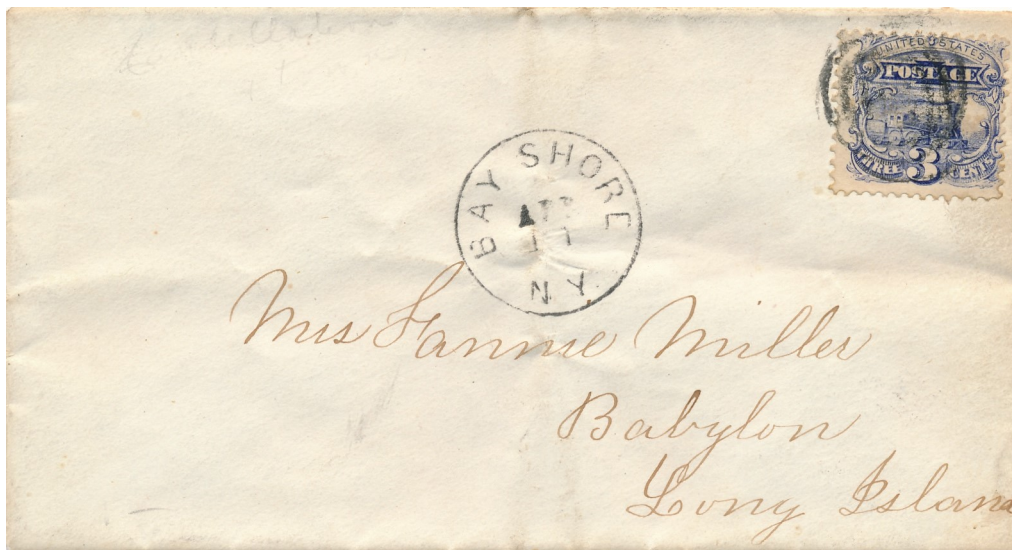 UNITED STATES
POSTAGE
THREE 3 CENTS
BAY SHORE
N.Y.
Mrs Fannie Miller
Babylon
Long Island